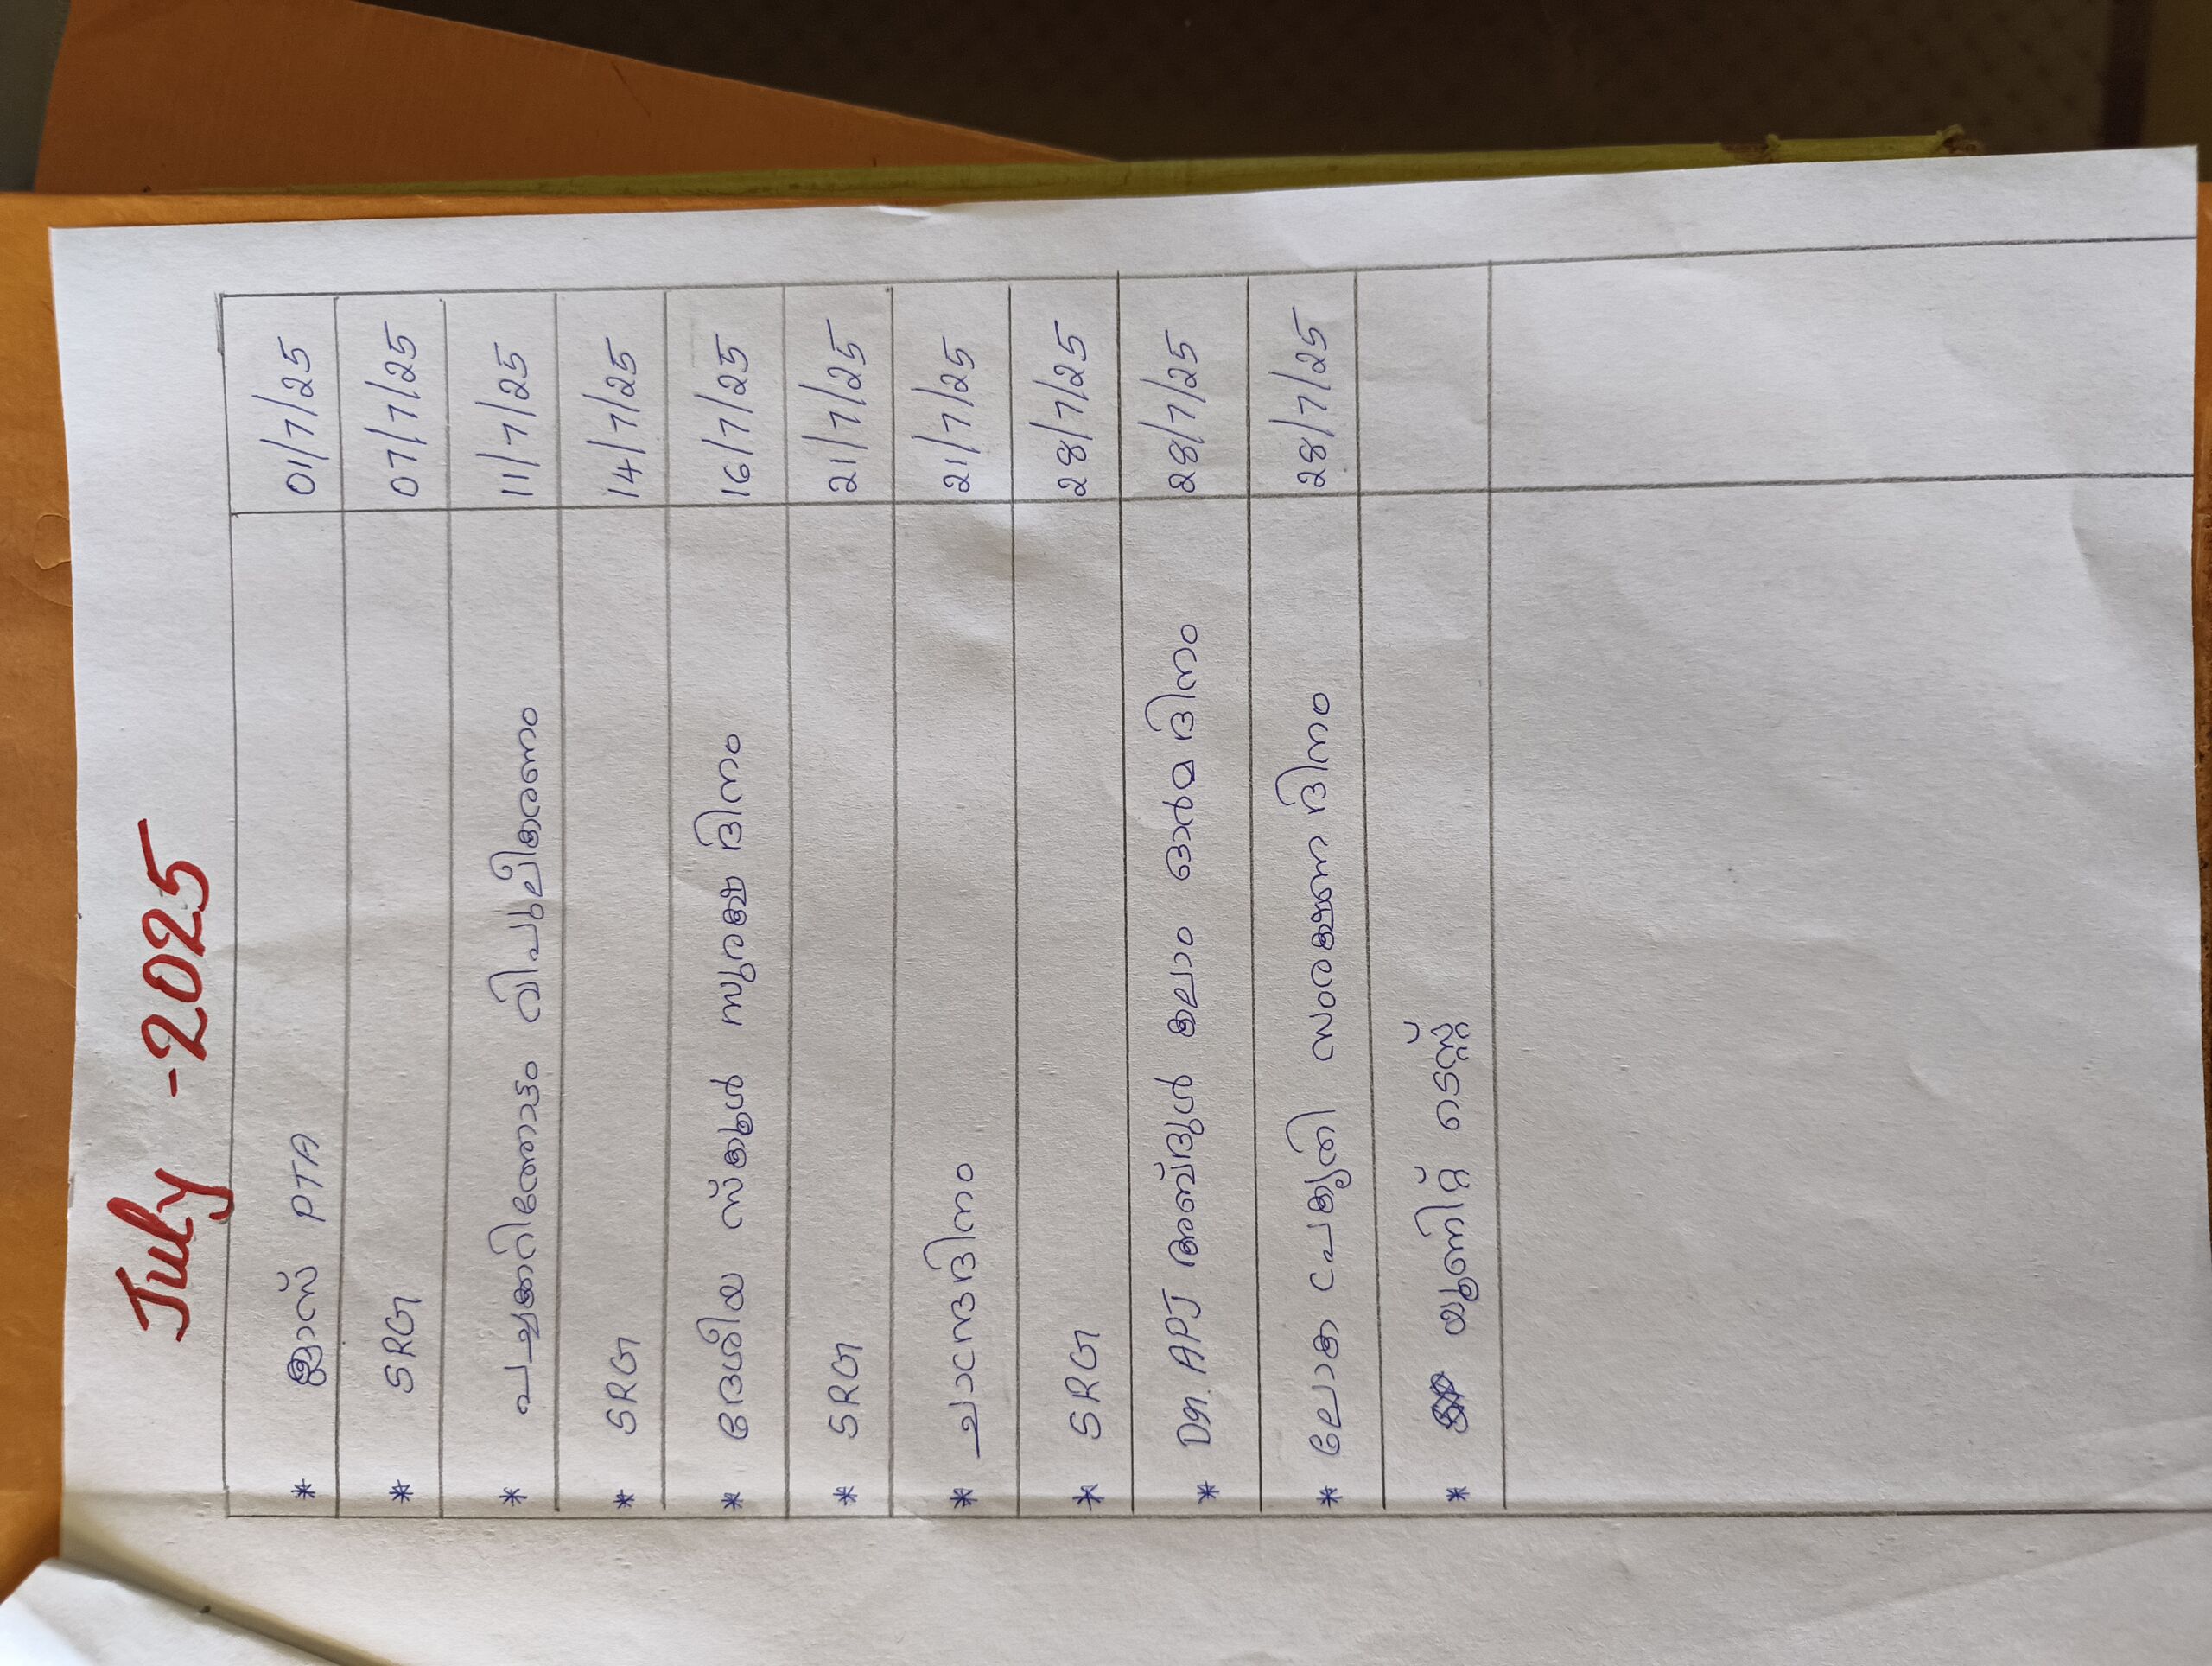 July - 2025
* ക്ലാസ് PTA 01/7/25
* SRG 07/7/25
* പച്ചക്കറിത്തോട്ടം വിപുലീകരണം 11/7/25
* SRG 14/7/25
* ദേശീയ സ്കൂൾ സുരക്ഷ ദിനം 16/7/25
* SRG 21/7/25
* ചാന്ദ്രദിനം 21/7/25
* SRG 28/7/25
* Dr. APJ അബ്ദുൾ കലാം ഓർമ ദിനം 28/7/25
* ലോക പ്രകൃതി സംരക്ഷണ ദിനം 28/7/25
* യൂണിറ്റ് ടെസ്റ്റ്